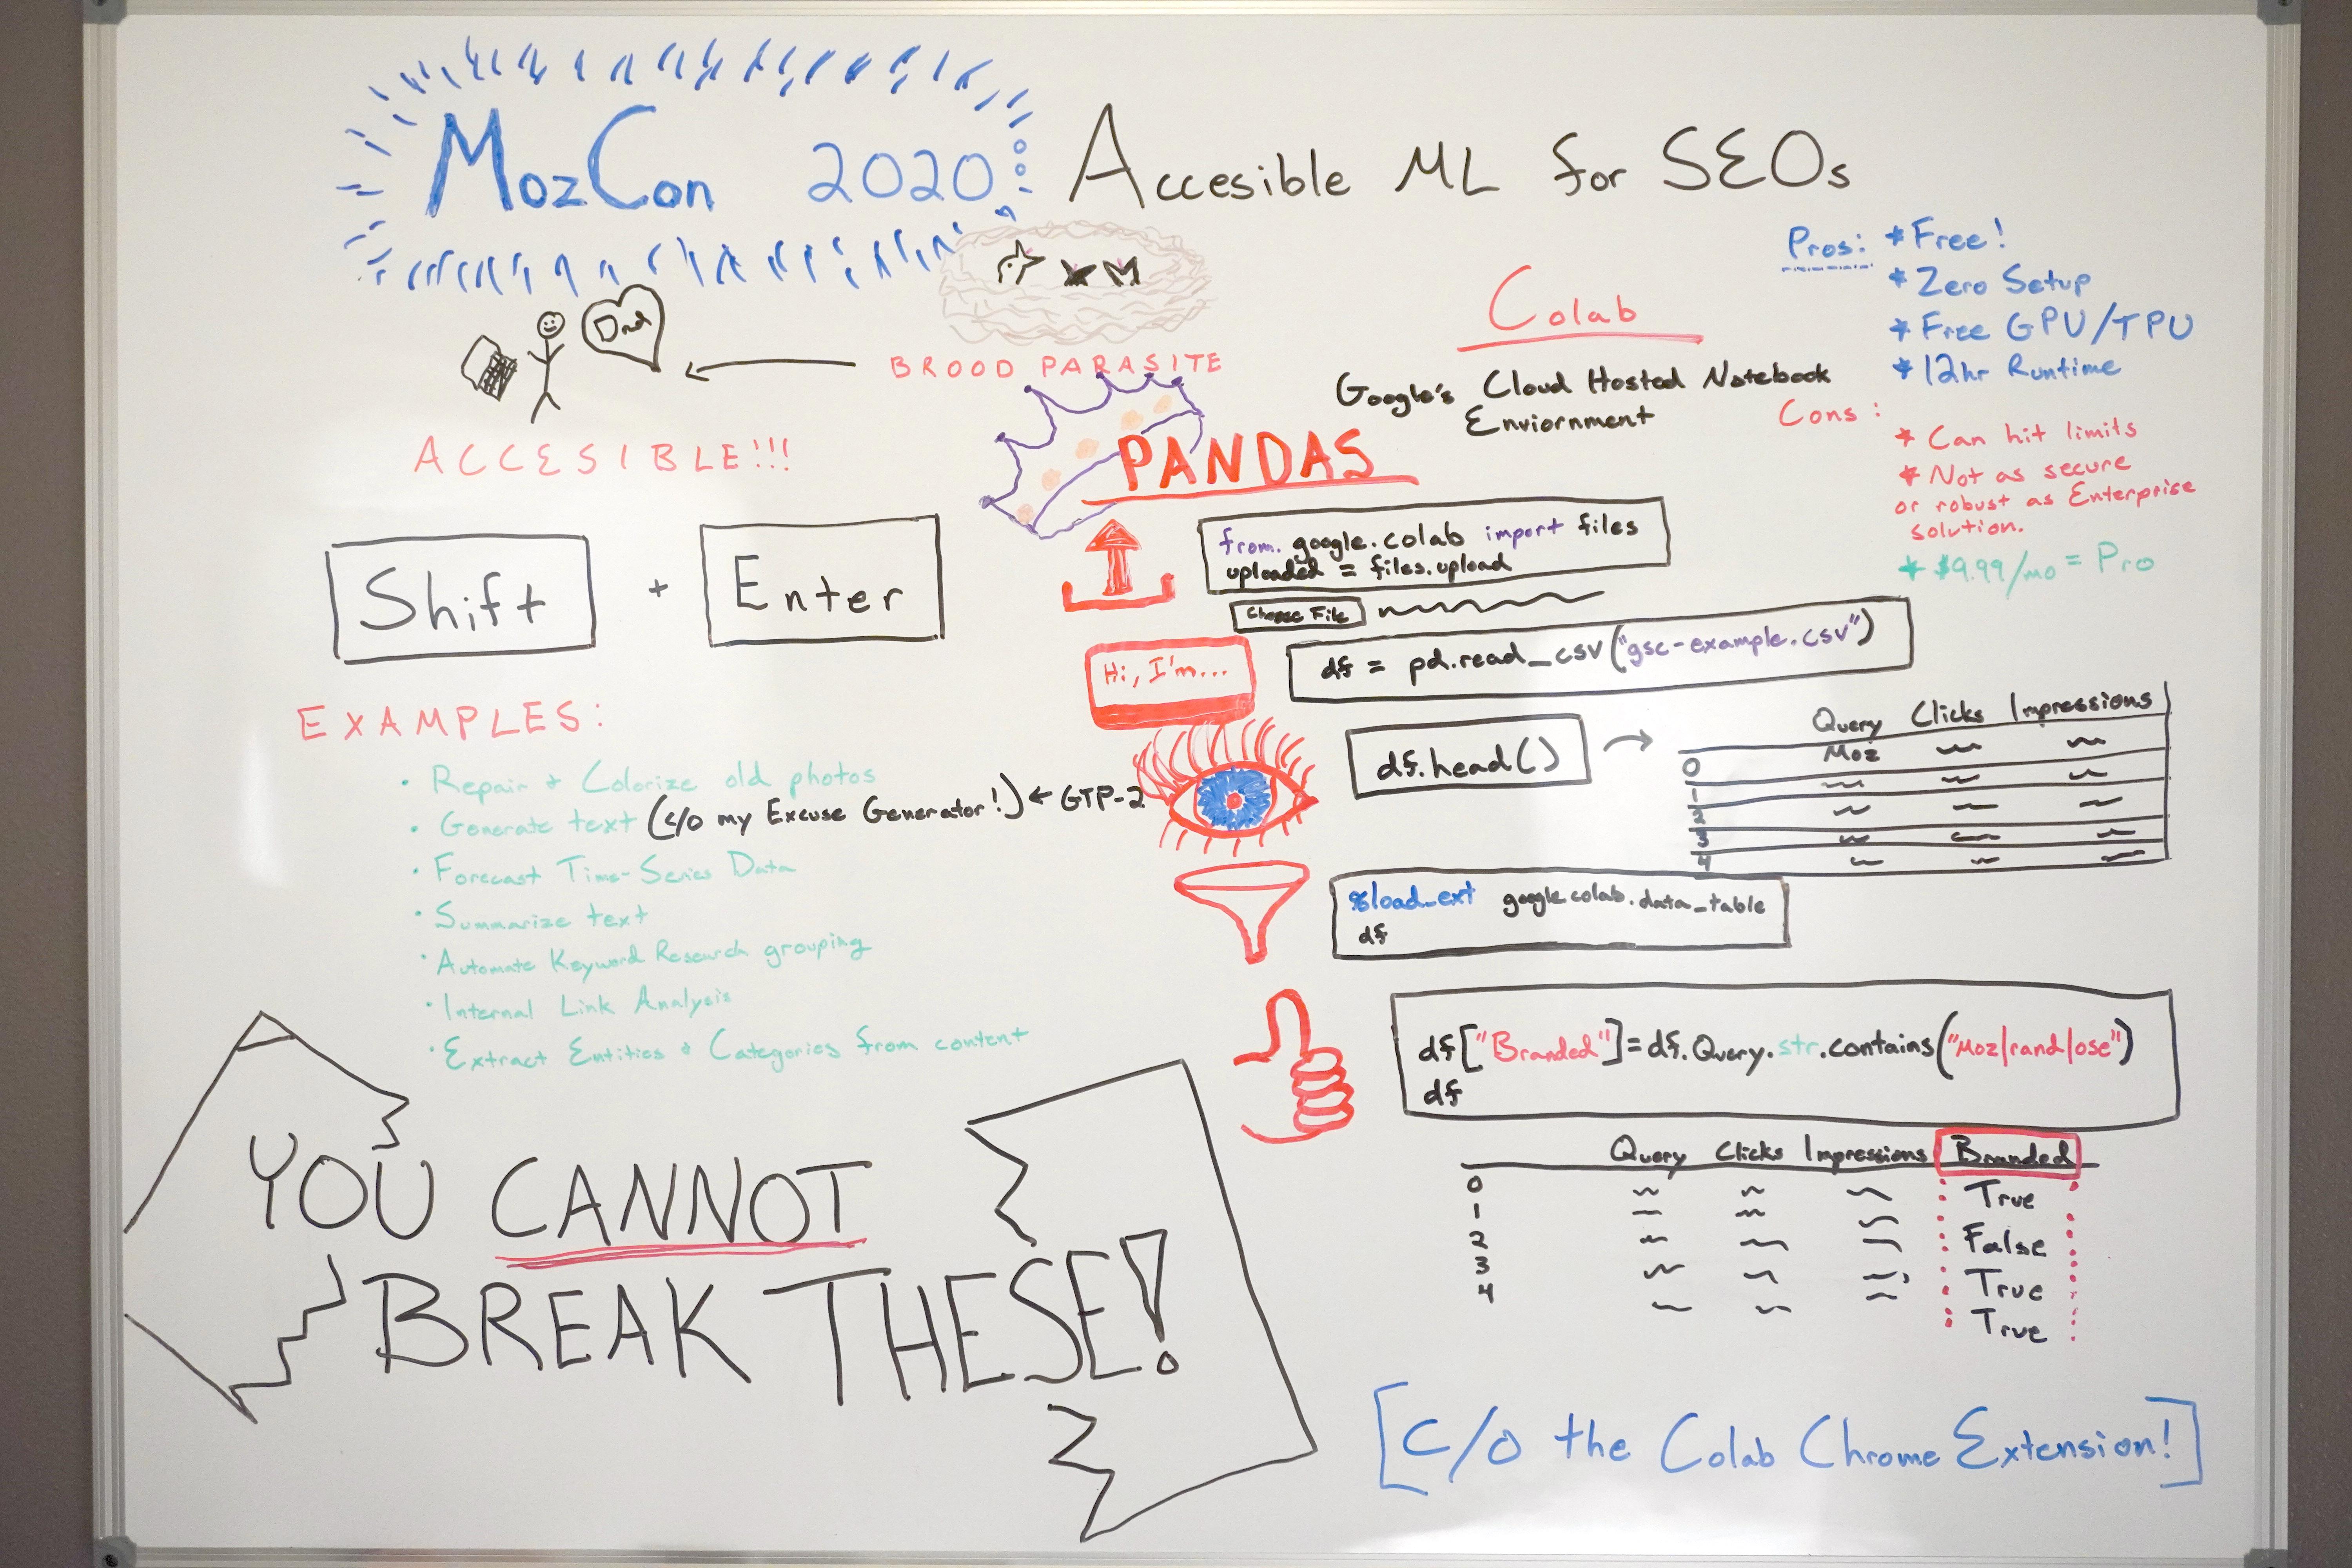 MozCon 2020:
Accesible ML for SEOs
Dad
BROOD PARASITE
ACCESIBLE!!!
Shift + Enter
EXAMPLES:
• Repair + Colorize old photos
• Generate text (c/o my Excuse Generator!) ← GTP-2
• Forecast Time-Series Data
• Summarize text
• Automate Keyword Research grouping
• Internal Link Analysis
• Extract Entities & Categories from content
YOU CANNOT
BREAK THESE!
Colab
Google's Cloud Hosted Notebook
Enviornment
Pros: * Free!
* Zero Setup
* Free GPU/TPU
* 12hr Runtime
Cons:
* Can hit limits
* Not as secure
or robust as Enterprise
solution.
* $9.99/mo = Pro
PANDAS
from. google.colab import files
uploaded = files.upload
Choose File
Hi, I'm...
df = pd.read_csv("gsc-example.csv")
df.head() →
Query Clicks Impressions
0 Moz
1
2
3
4
%load_ext google.colab.data_table
df
df["Branded"]=df.Query.str.contains("Moz|rand|ose")
df
Query Clicks Impressions Branded
0 True
1 False
2 True
3 True
4
[c/o the Colab Chrome Extension!]